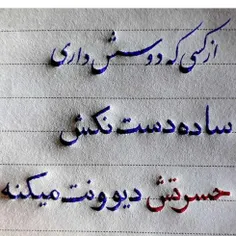 از کسی که دوسش داری
ساده دست نکش
حسرتش دیوونت میکنه